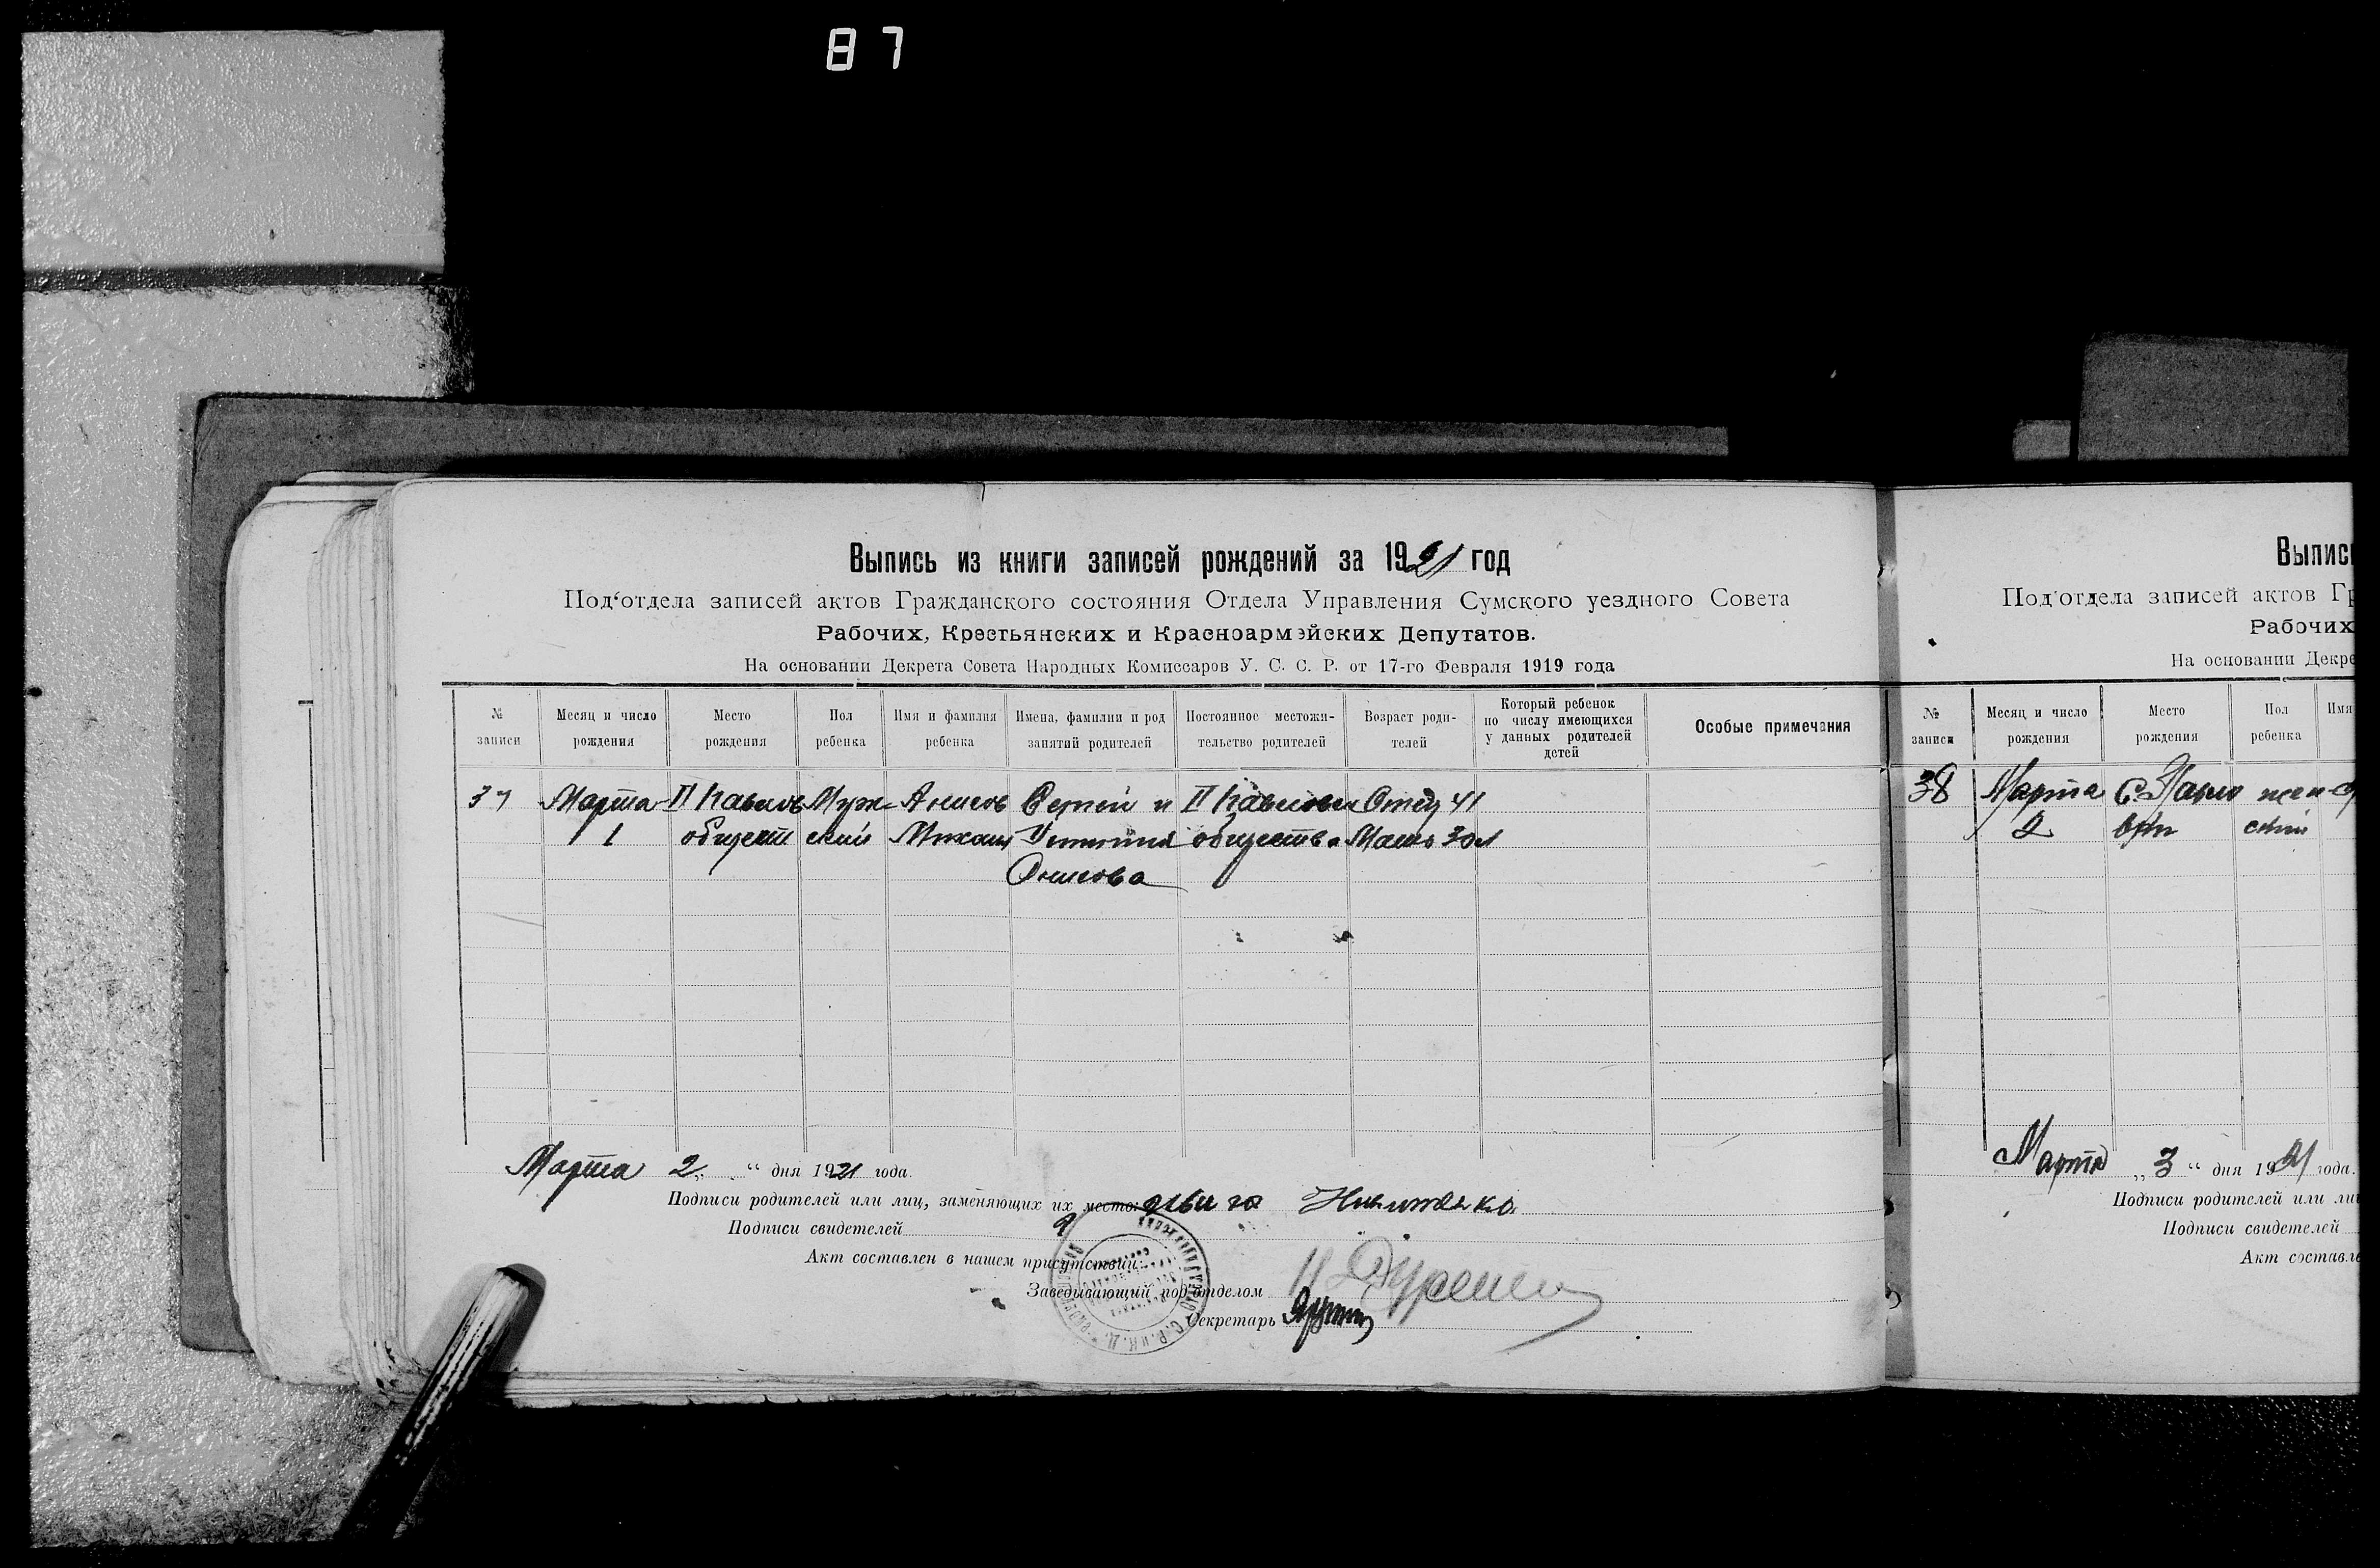 87
Выпись из книги записей рождений за 1921 год
Под‘отдела записей актов Гражданского состояния Отдела Управления Сумского уездного Совета
Рабочих, Крестьянских и Красноармэйских Депутатов.
На основании Декрета Совета Народных Комиссаров У. С. С. Р. от 17-го Февраля 1919 года
№ записи
Месяц и число рождения
Место рождения
Пол ребенка
Имя и фамилия ребенка
Имена, фамилии и род занятий родителей
Постоянное местожительство родителей
Возраст родителей
Который ребенок по числу имеющихся у данных родителей детей
Особые примечания
37 Марта II Павлов Муж Сергей и II Отец 41
1 общест ский Михаил общества Мать 30 л
Марта 2 “ дня 1921 года.
Подписи родителей или лиц, заменяющих их место:
Подписи свидетелей
Акт составлен в нашем присутствии:
Заведывающий под‘отделом
Секретарь
Выпис
Под‘отдела записей актов Гр
Рабочих
На основании Декре
№ записи
Месяц и число рождения
Место рождения
Пол ребенка
Имя
38 Марта С. Павло жен
2 ский
Марта „3“ дня 1921 года.
Подписи родителей или ли
Подписи свидетелей
Акт составле